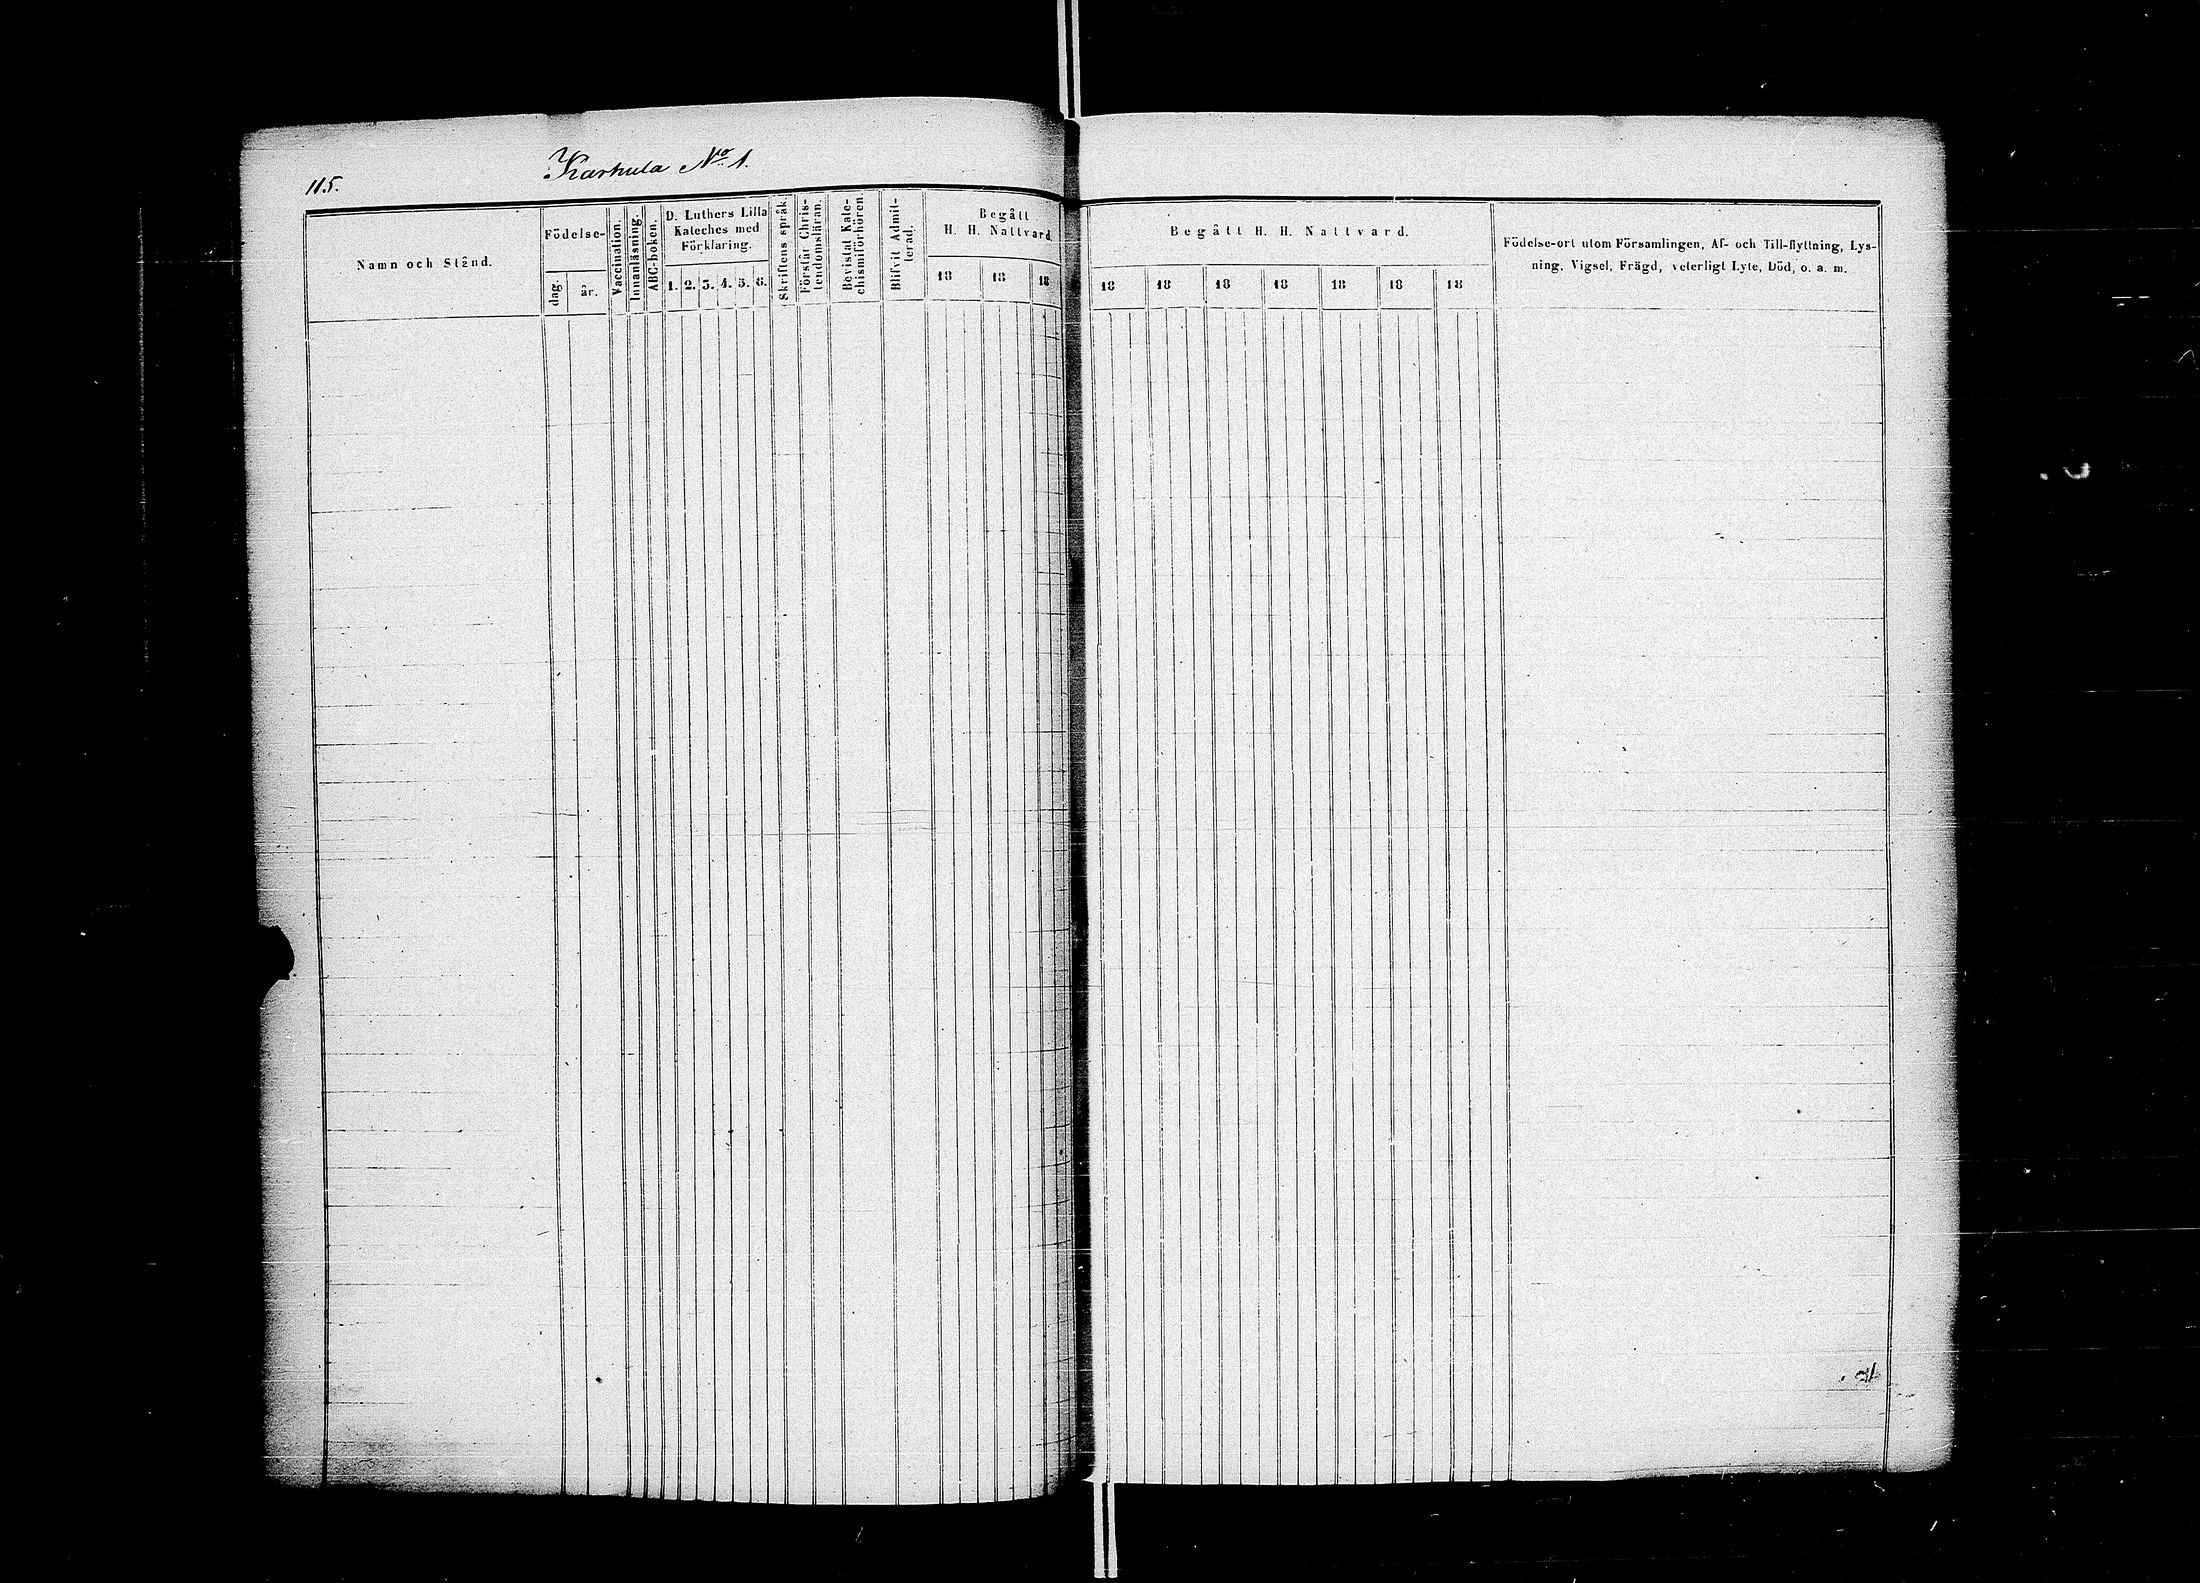 115.
Karhula No 1.
Namn och Stånd.
Födelse-
dag.
år.
Vaccination.
Innanläsning.
ABC-boken.
D. Luthers Lilla
Kateches med
Förklaring.
1. 2. 3. 4. 5. 6.
Skriftens språk.
Förstår Chris-
tendomsläran.
Bevistat Kate-
chismiförhören.
Blifvit Admit-
terad.
Begått
H. H. Nattvard.
18 18 18
Begått H. H. Nattvard.
18 18 18 18 18 18 18
Födelse-ort utom Församlingen, Af- och Till-flyttning, Lys-
ning, Vigsel, Frägd, veterligt Lyte, Död, o. a. m.